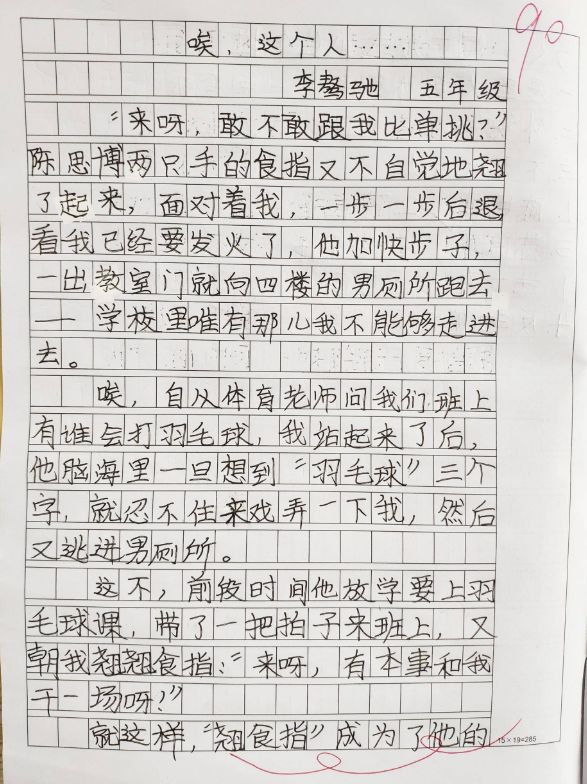 90
唉，这个人……
李骜驰 五年级
“来呀，敢不敢跟我比单挑？”
陈思博两只手的食指又不自觉地翘
了起来，面对着我，一步一步后退，
看我已经要发火了，他加快步子，
一出教室门就向四楼的男厕所跑去
——学校里唯有那儿我不能够走进
去。
唉，自从体育老师问我们班上
有谁会打羽毛球，我站起来了后，
他脑海里一旦想到“羽毛球”三个
字，就忍不住来戏弄一下我，然后
又逃进男厕所。
这不，前段时间他放学要上羽
毛球课，带了一把拍子来班上，又
朝我翘翘食指：“来呀，有本事和我
干一场呀！”
就这样，“翘食指”成为了他的
15×19=285